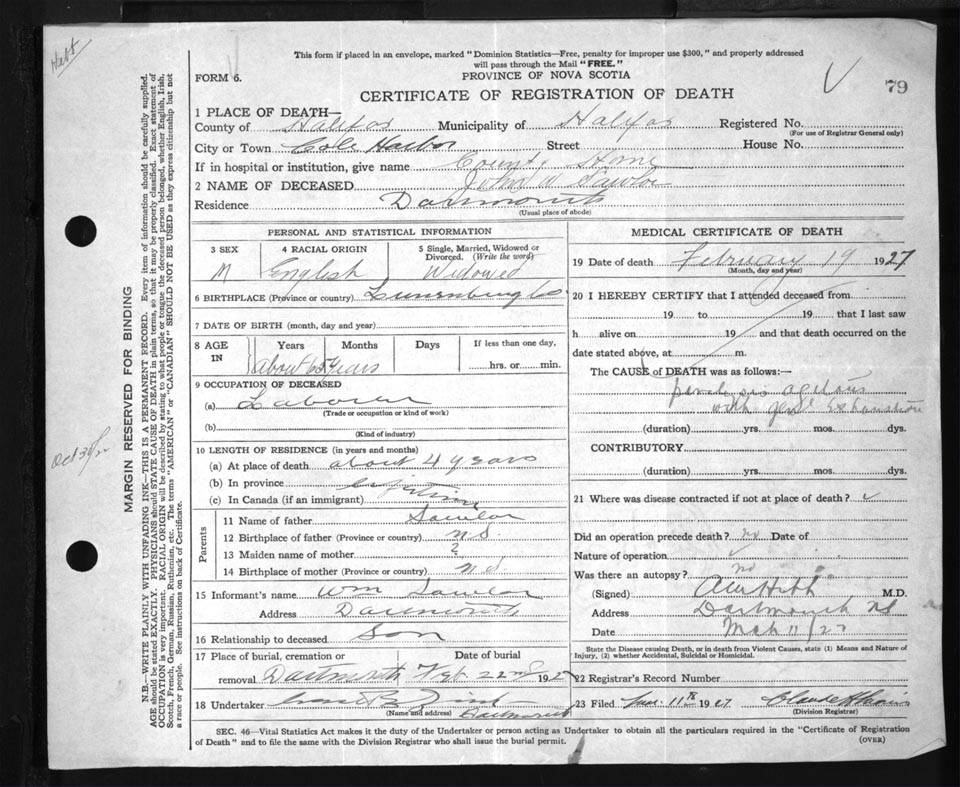 Hebb
This form if placed in an envelope, marked "Dominion Statistics—Free, penalty for improper use $300," and properly addressed
will pass through the Mail "FREE."
FORM 6.
PROVINCE OF NOVA SCOTIA
79
CERTIFICATE OF REGISTRATION OF DEATH
1 PLACE OF DEATH—
County of Halifax Municipality of Halifax Registered No.
(For use of Registrar General only)
City or Town Cole Harbor Street House No.
If in hospital or institution, give name County Home
2 NAME OF DECEASED John W Sawlor
Residence Dartmouth
(Usual place of abode)
PERSONAL AND STATISTICAL INFORMATION
3 SEX 4 RACIAL ORIGIN 5 Single, Married, Widowed or
Divorced. (Write the word)
M English Widowed
6 BIRTHPLACE (Province or country) Lunenburg Co.
7 DATE OF BIRTH (month, day and year)
8 AGE IN Years Months Days If less than one day,
About 65 years hrs. or min.
9 OCCUPATION OF DECEASED
(a) Laborer
(Trade or occupation or kind of work)
(b)
(Kind of industry)
10 LENGTH OF RESIDENCE (in years and months)
(a) At place of death about 4 years
(b) In province lifetime
(c) In Canada (if an immigrant)
Parents
11 Name of father Sawlor
12 Birthplace of father (Province or country) N.S.
13 Maiden name of mother ?
14 Birthplace of mother (Province or country) N.S.
15 Informant's name Wm Sawlor
Address Dartmouth
16 Relationship to deceased Son
17 Place of burial, cremation or Date of burial
removal Dartmouth Feb 22nd 1927
18 Undertaker
(Name and address) Dartmouth
MEDICAL CERTIFICATE OF DEATH
19 Date of death February 19 1927
(Month, day and year)
20 I HEREBY CERTIFY that I attended deceased from
19 to 19 that I last saw
h alive on 19 and that death occurred on the
date stated above, at m.
The CAUSE of DEATH was as follows:—
paralysis agitans
with genl Exhaustion
(duration) yrs. mos. dys.
CONTRIBUTORY
(duration) yrs. mos. dys.
21 Where was disease contracted if not at place of death?
Did an operation precede death? no Date of
Nature of operation
Was there an autopsy? no
(Signed) Hebb M.D.
Address Dartmouth NS
Date Mch 11/27
State the Disease causing Death, or in death from Violent Causes, state (1) Means and Nature of
Injury, (2) whether Accidental, Suicidal or Homicidal.
22 Registrar's Record Number
23 Filed Mar. 11th 1927
(Division Registrar)
SEC. 46—Vital Statistics Act makes it the duty of the Undertaker or person acting as Undertaker to obtain all the particulars required in the "Certificate of Registration
of Death" and to file the same with the Division Registrar who shall issue the burial permit.
(OVER)
MARGIN RESERVED FOR BINDING
N.B.—WRITE PLAINLY WITH UNFADING INK—THIS IS A PERMANENT RECORD. Every item of information should be carefully supplied.
AGE should be stated EXACTLY. PHYSICIANS should STATE CAUSE OF DEATH in plain terms, so that it may be properly classified. Exact statement of
OCCUPATION is very important. RACIAL ORIGIN will be described by stating to what people or tongue the deceased person belonged, whether English, Irish,
Scotch, French, German, Russian, Ruthenian, etc. The terms "AMERICAN" or "CANADIAN" SHOULD NOT BE USED as they express citizenship but not
a race or people. See instructions on back of Certificate.